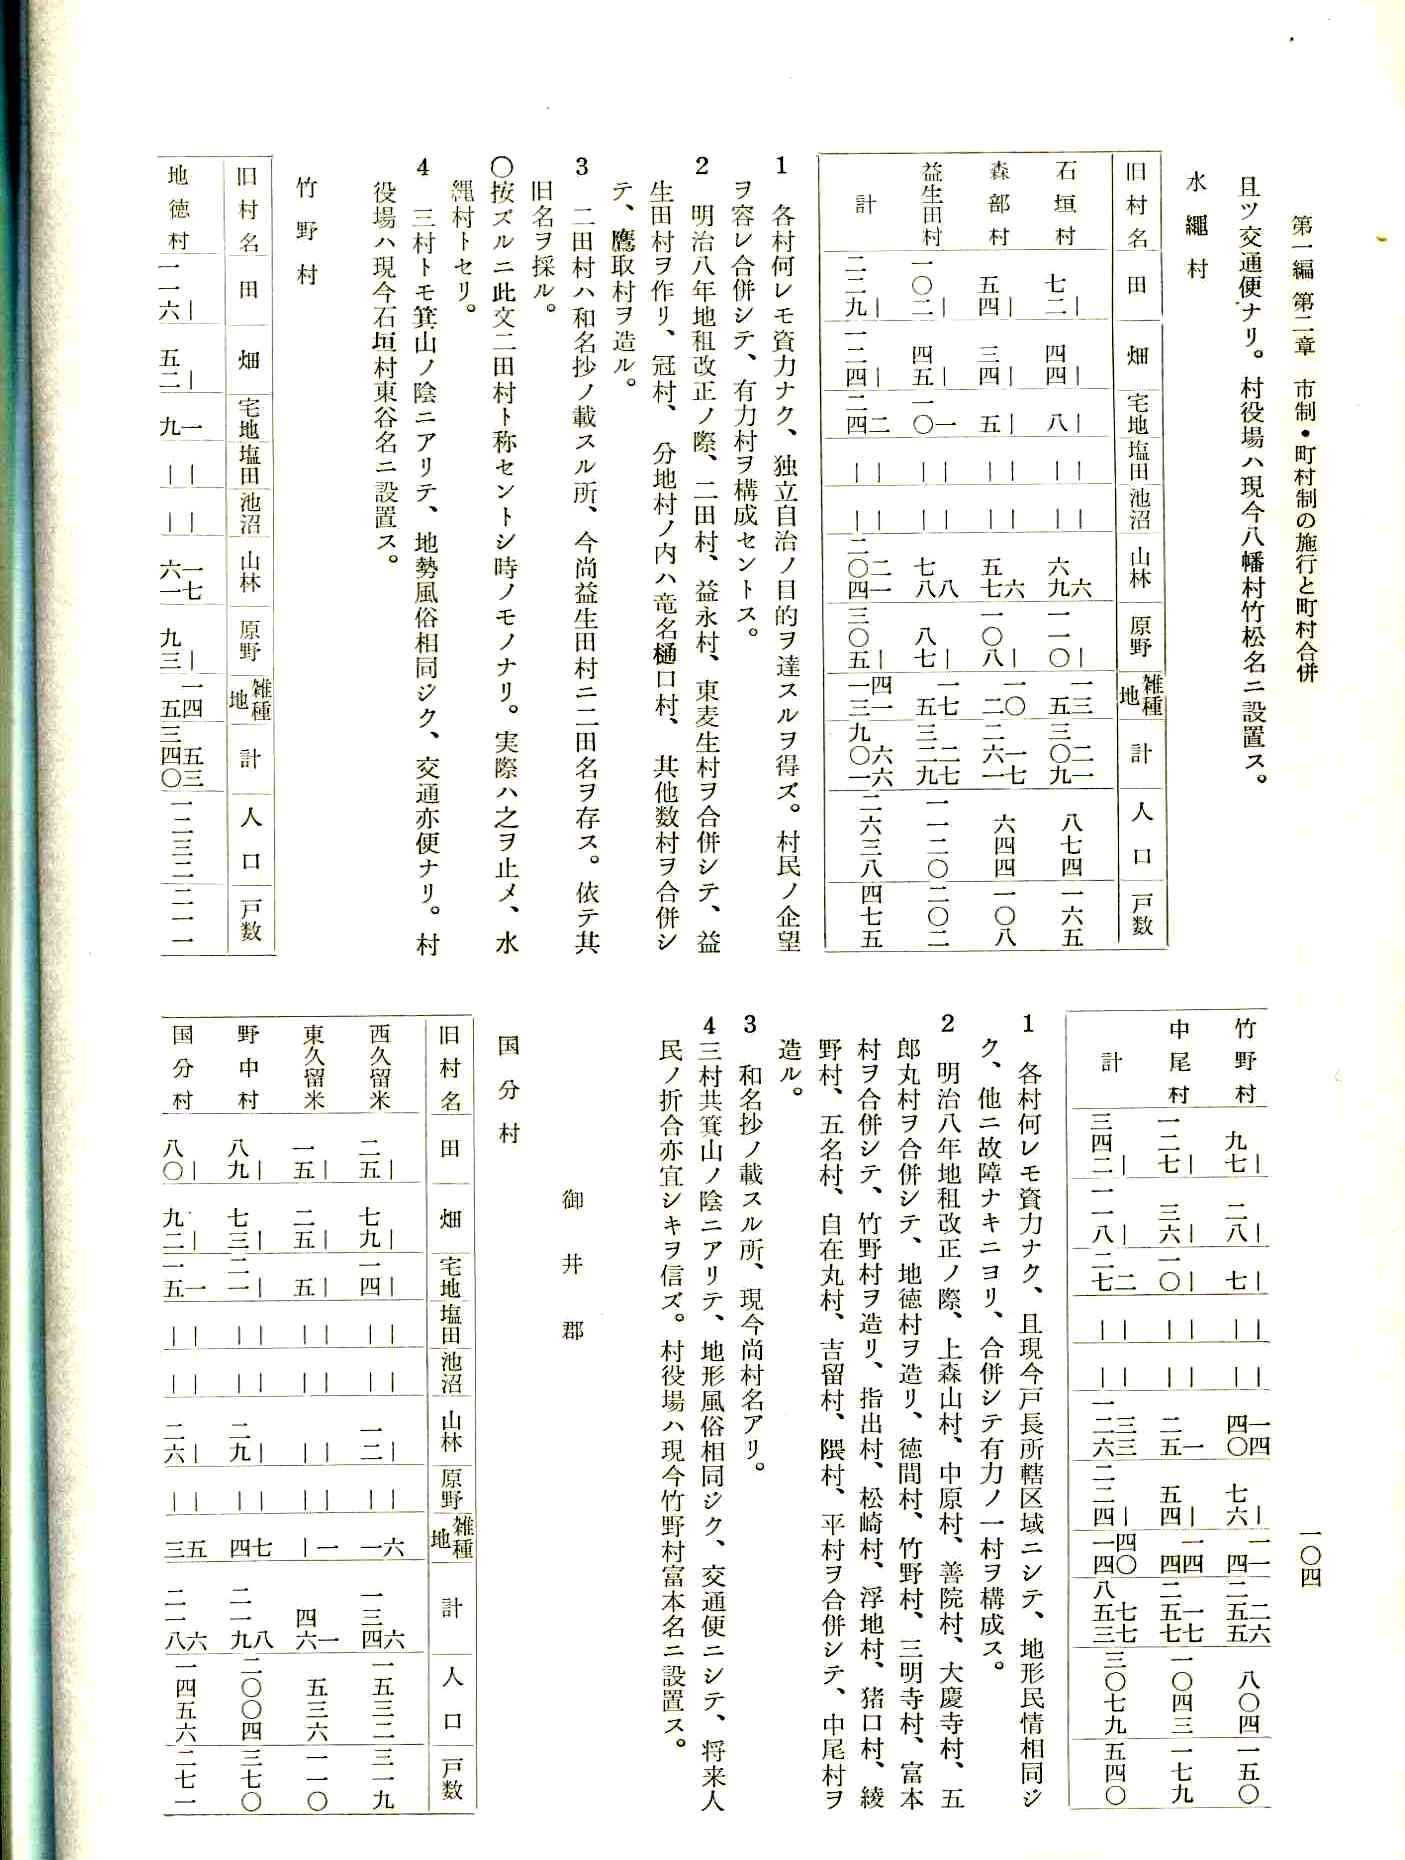 第一編 第二章 市制・町村制の施行と町村合併
一〇四
且ツ交通便ナリ。村役場ハ現今八幡村竹松名ニ設置ス。
水縄村
旧村名 田 畑 宅地 塩田 池沼 山林 原野 雑種地 計 人口 戸数
石垣村 ｜ 七二 ｜ 四四 ｜ 八 ｜ ｜ ｜ ｜ 六 六九 ｜ 一一〇 一三 五 二一 三〇九 八七四 一六五
森部村 ｜ 五四 ｜ 三四 ｜ 五 ｜ ｜ ｜ ｜ 六 五七 ｜ 一〇八 一〇 二 一七 二六一 六四四 一〇八
益生田村 ｜ 一〇二 ｜ 四五 一 一〇 ｜ ｜ ｜ ｜ 八 七八 ｜ 八七 一七 五 二七 三二九 一一二〇 二〇二
計 ｜ 二二九 ｜ 一二四 二 二四 ｜ ｜ ｜ ｜ 二一 二〇四 ｜ 三〇五 四一 一三 六六 九〇一 二六三八 四七五
1 各村何レモ資力ナク、独立自治ノ目的ヲ達スルヲ得ズ。村民ノ企望
ヲ容レ合併シテ、有力村ヲ構成セントス。
2 明治八年地租改正ノ際、二田村、益永村、東麦生村ヲ合併シテ、益
生田村ヲ作リ、冠村、分地村ノ内ハ竜名樋口村、其他数村ヲ合併シ
テ、鷹取村ヲ造ル。
3 二田村ハ和名抄ノ載スル所、今尚益生田村ニ二田名ヲ存ス。依テ其
旧名ヲ採ル。
〇按ズルニ此文二田村ト称セントシ時ノモノナリ。実際ハ之ヲ止メ、水
縄村トセリ。
4 三村トモ箕山ノ陰ニアリテ、地勢風俗相同ジク、交通亦便ナリ。村
役場ハ現今石垣村東谷名ニ設置ス。
竹野村
旧村名 田 畑 宅地 塩田 池沼 山林 原野 雑種地 計 人口 戸数
地徳村 ｜ 一一六 ｜ 五二 一 九 ｜ ｜ ｜ ｜ 一七 六一 ｜ 九三 一四 五 五三 三四〇 一二三二 二一一
竹野村 ｜ 九七 ｜ 二八 ｜ 七 ｜ ｜ ｜ ｜ 一四 四〇 ｜ 七六 一一 四 二六 二五五 八〇四 一五〇
中尾村 ｜ 一二七 ｜ 三六 ｜ 一〇 ｜ ｜ ｜ ｜ 一 二五 ｜ 五四 一四 四 一七 二五七 一〇四三 一七九
計 ｜ 三四二 ｜ 一一八 二 二七 ｜ ｜ ｜ ｜ 三三 一二六 ｜ 二二四 四〇 一四 七七 八五三 三〇七九 五四〇
1 各村何レモ資力ナク、且現今戸長所轄区域ニシテ、地形民情相同ジ
ク、他ニ故障ナキニヨリ、合併シテ有力ノ一村ヲ構成ス。
2 明治八年地租改正ノ際、上森山村、中原村、善院村、大慶寺村、五
郎丸村ヲ合併シテ、地徳村ヲ造リ、徳間村、竹野村、三明寺村、富本
村ヲ合併シテ、竹野村ヲ造リ、指出村、松崎村、浮地村、猪口村、綾
野村、五名村、自在丸村、吉留村、隈村、平村ヲ合併シテ、中尾村ヲ
造ル。
3 和名抄ノ載スル所、現今尚村名アリ。
4 三村共箕山ノ陰ニアリテ、地形風俗相同ジク、交通便ニシテ、将来人
民ノ折合亦宜シキヲ信ズ。村役場ハ現今竹野村富本名ニ設置ス。
御井郡
国分村
旧村名 田 畑 宅地 塩田 池沼 山林 原野 雑種地 計 人口 戸数
西久留米 ｜ 二五 ｜ 七九 ｜ 一四 ｜ ｜ ｜ ｜ ｜ 一二 ｜ ｜ 六 一 六 一三四 一五三二 三一九
東久留米 ｜ 一五 ｜ 二五 ｜ 五 ｜ ｜ ｜ ｜ ｜ ｜ ｜ ｜ 一 ｜ 一 四六 五三六 一一〇
野中村 ｜ 八九 ｜ 七三 ｜ 二一 ｜ ｜ ｜ ｜ ｜ 二九 ｜ ｜ 七 四 八 二一九 二〇〇四 三七〇
国分村 ｜ 八〇 ｜ 九二 一 一五 ｜ ｜ ｜ ｜ ｜ 二六 ｜ ｜ 五 三 六 二一八 一四五六 二七一